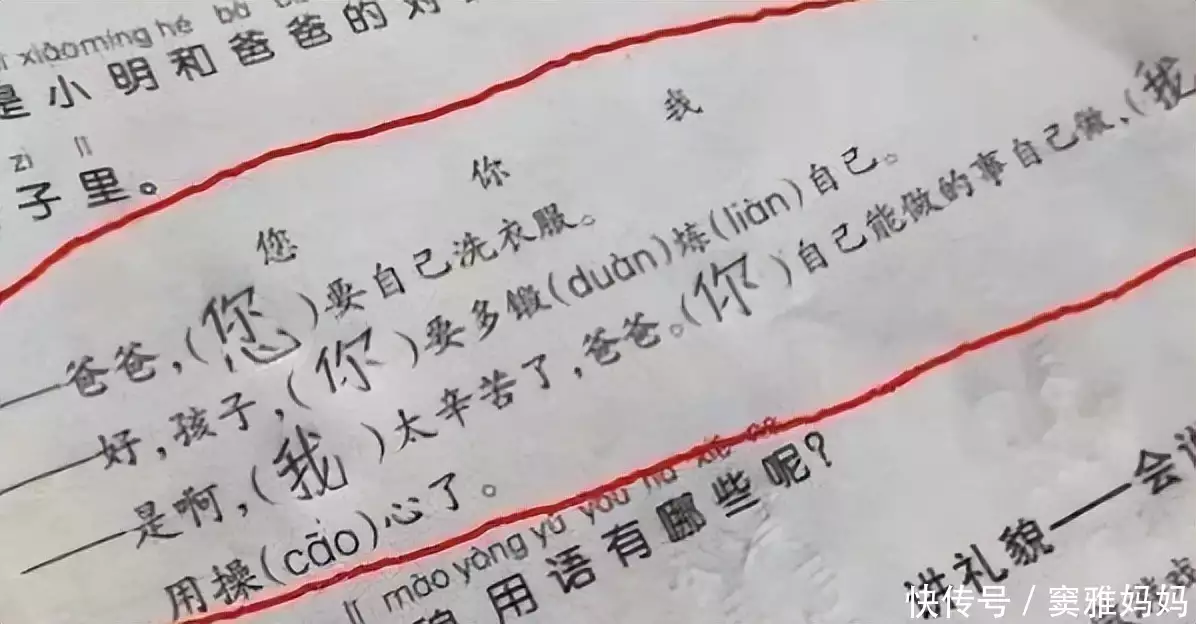 xiǎomíng hé bà
是小明和爸爸的对
zi lǐ
子里。
您 你 我
——爸爸，(您)要自己洗衣服。
——好，孩子，(你)要多锻(duàn)炼(liàn)自己。
——是啊，(我)太辛苦了，爸爸。(你)自己能做的事自己做，(我
用操(cāo)心了。
mào yàng yǔ yǒu nǎ xiē
貌用语有哪些呢？
讲礼貌——会
快传号 / 窦雅妈妈